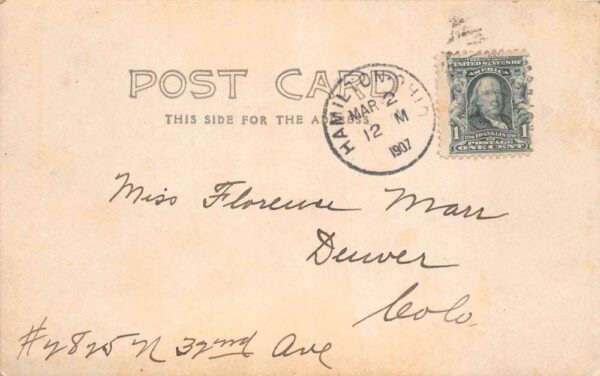 POST CARD
THIS SIDE FOR THE ADDRESS
HAMILTON, OHIO
MAR 2
12 M
1907
UNITED STATES OF
AMERICA
1 FRANKLIN 1
POSTAGE
ONE CENT
Miss Florence Marr
Denver
Colo.
32nd Ave